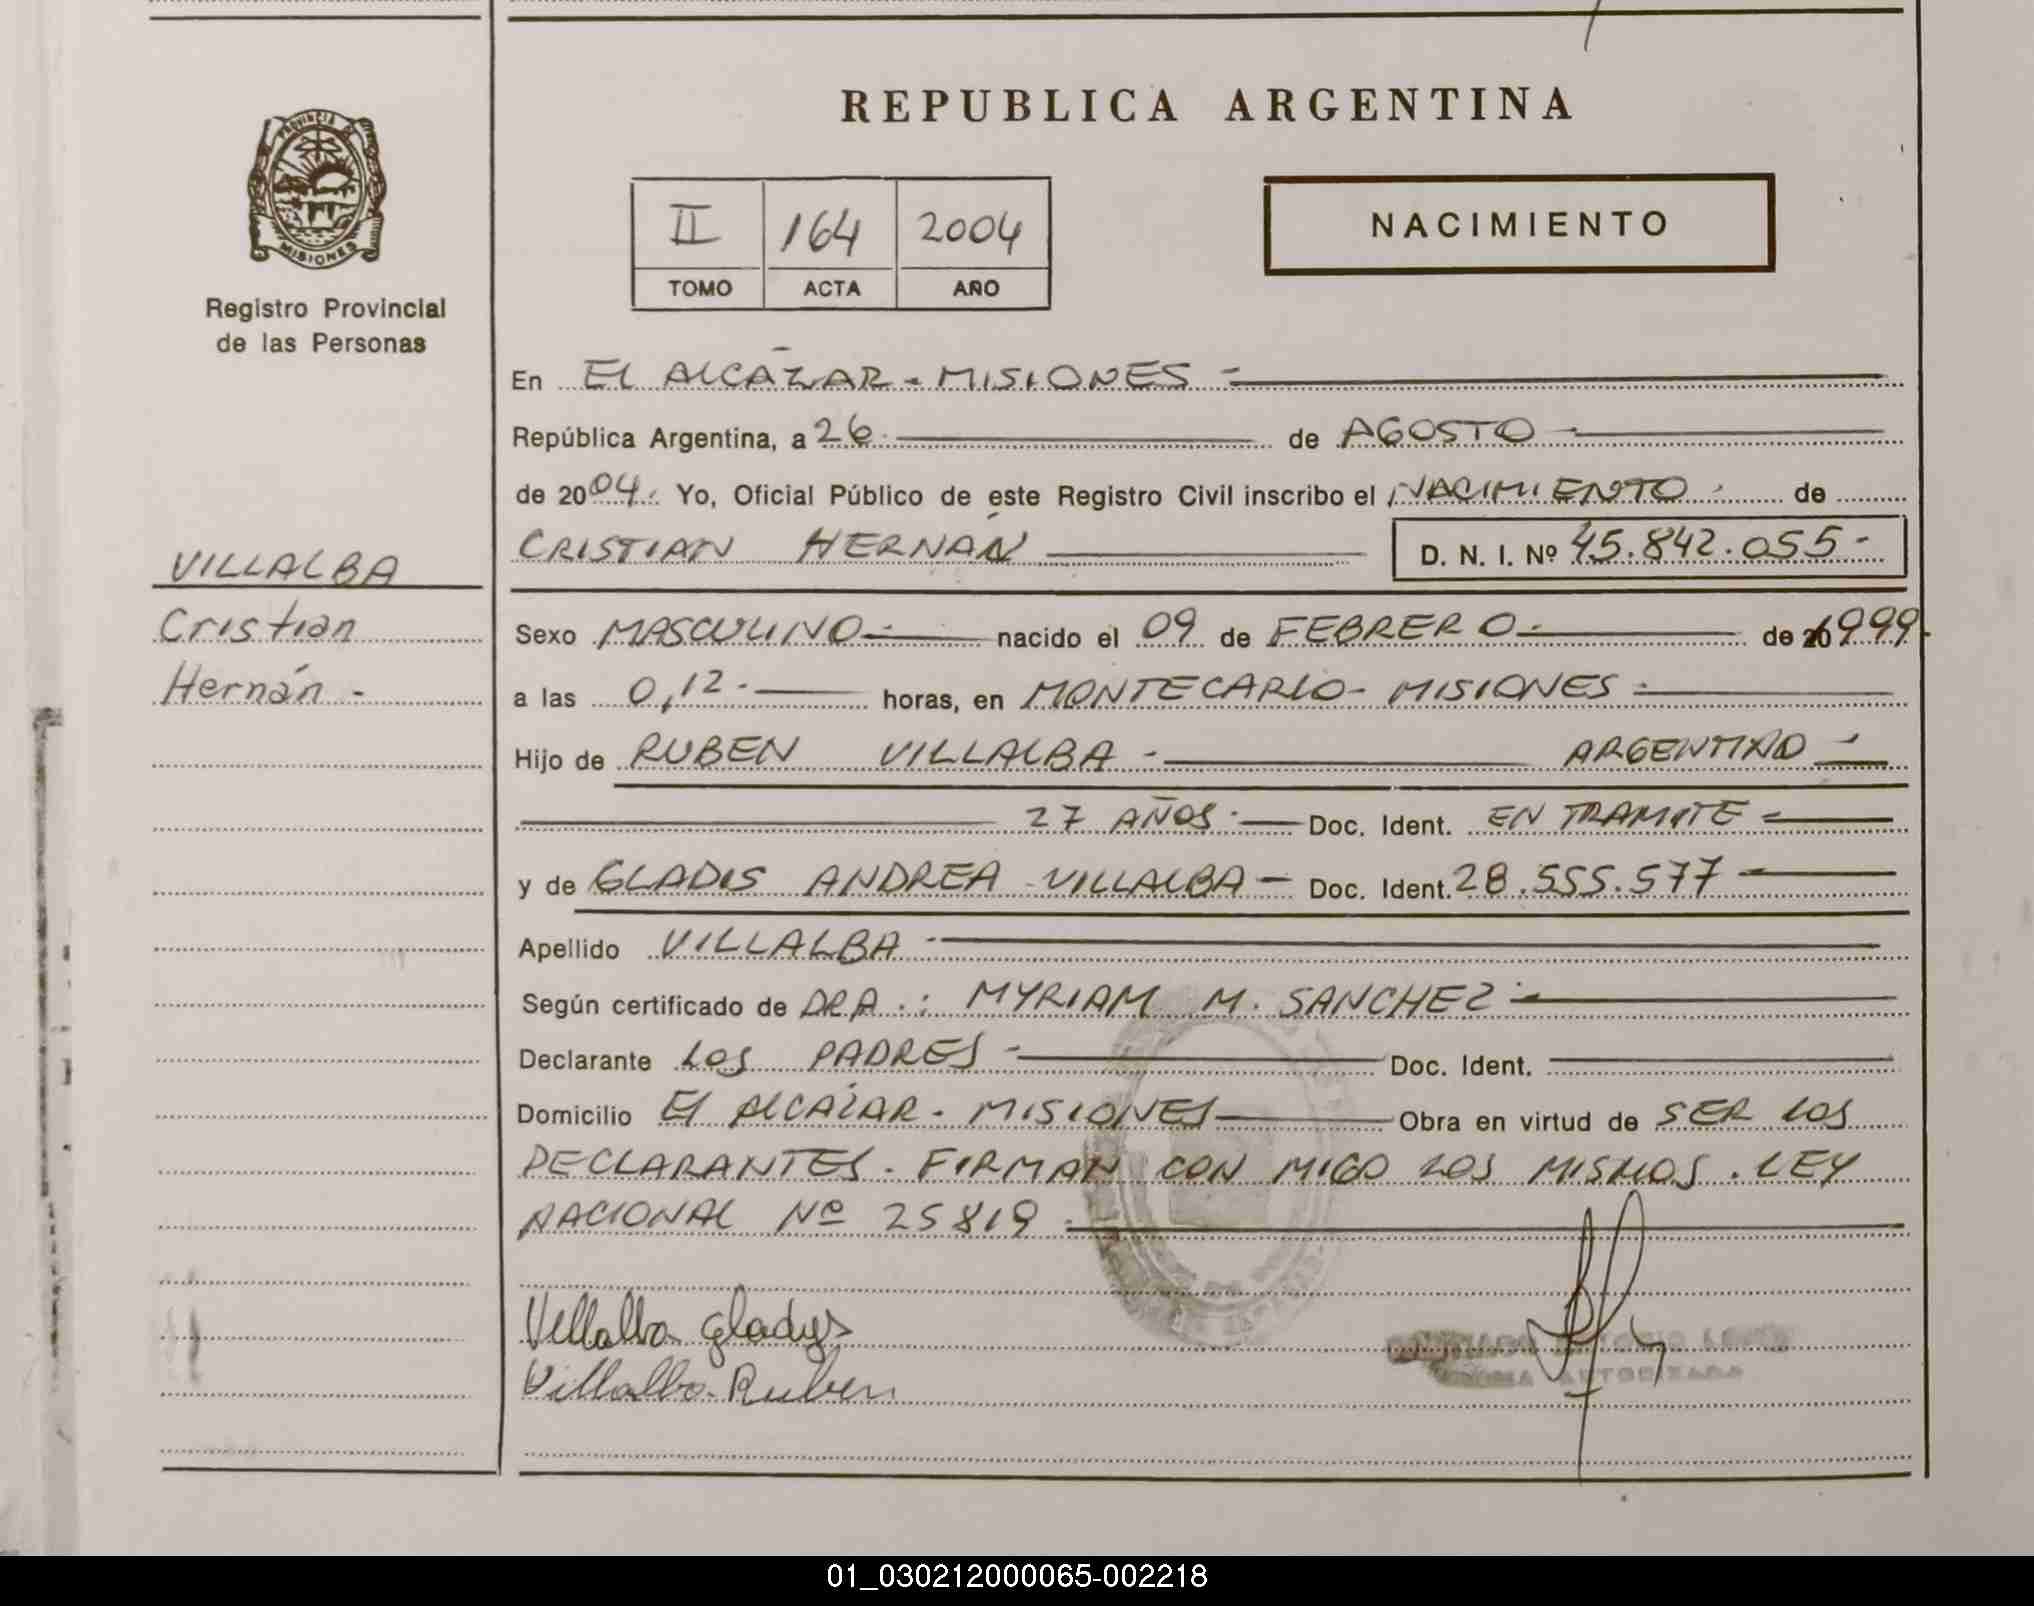 REPUBLICA ARGENTINA
PROVINCIA DE
MISIONES
Registro Provincial
de las Personas
II 164 2004
TOMO ACTA AÑO
NACIMIENTO
En EL ALCÁZAR - MISIONES -
República Argentina, a 26 de AGOSTO
de 2004. Yo, Oficial Público de este Registro Civil inscribo el NACIMIENTO de
CRISTIAN HERNÁN D. N. I. Nº 45.842.055-
VILLALBA
Cristian
Hernán -
Sexo MASCULINO nacido el 09 de FEBRERO de 1999
a las 0,12 horas, en MONTECARLO - MISIONES
Hijo de RUBEN VILLALBA - ARGENTINO
27 AÑOS Doc. Ident. EN TRAMITE
y de GLADIS ANDREA VILLALBA - Doc. Ident. 28.555.577
Apellido VILLALBA
Según certificado de DRA.: MYRIAM M. SANCHEZ
Declarante LOS PADRES - Doc. Ident.
Domicilio El ALCÁZAR - MISIONES Obra en virtud de SER LOS
DECLARANTES. FIRMAN CON MIGO LOS MISMOS. LEY
NACIONAL Nº 25819
Villalba gladys
Villalba Ruben
AUTORIZADA
01_030212000065-002218